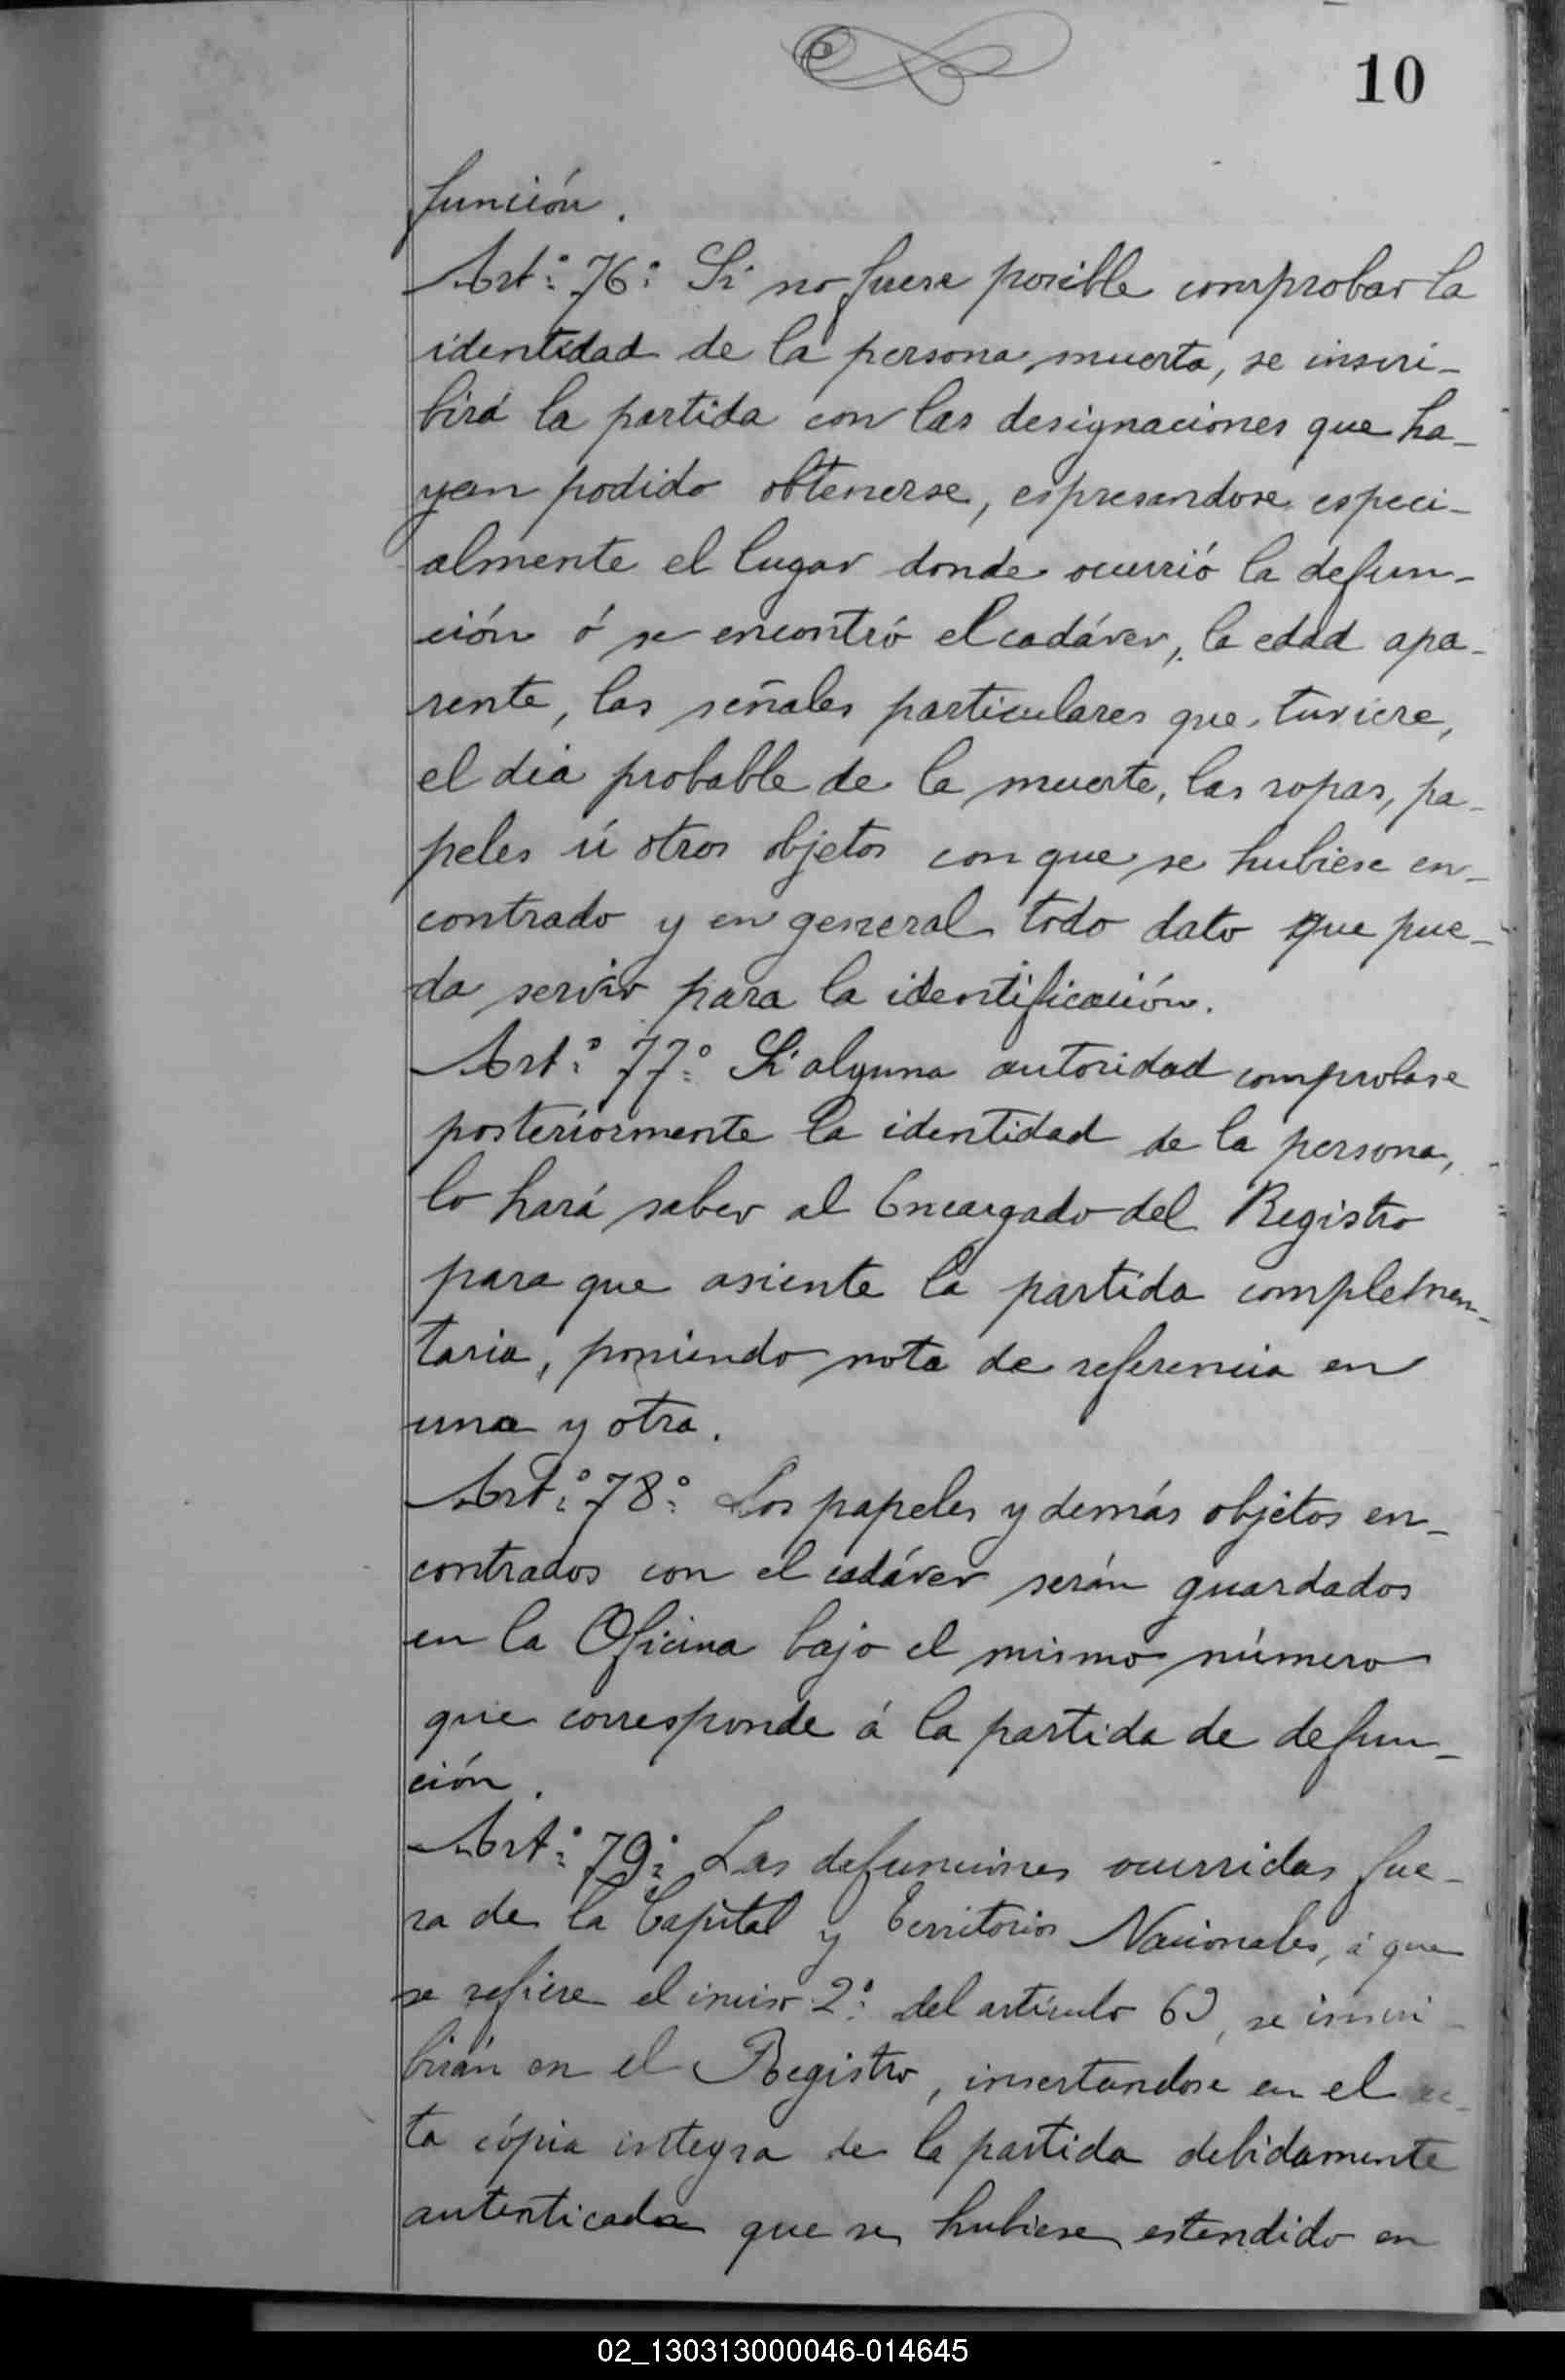 10
función.
Art.º 76.º Si no fuere posible comprobar la
identidad de la persona muerta, se inscri-
birá la partida con las designaciones que ha-
yan podido obtenerse, espresandose especi-
almente el lugar donde ocurrió la defun-
ción ó se encontró el cadáver, la edad apa-
rente, las señales particulares que tuviere,
el dia probable de la muerte, las ropas, pa-
peles ú otros objetos con que se hubiese en-
contrado y en general todo dato que pue-
da servir para la identificación.
Art.º 77.º Si alguna autoridad comprobase
posteriormente la identidad de la persona,
lo hará saber al Encargado del Registro
para que asiente la partida complemen-
taria, poniendo nota de referencia en
una y otra.
Art.º 78.º Los papeles y demás objetos en-
contrados con el cadáver serán guardados
en la Oficina bajo el mismo número
que corresponde á la partida de defun-
ción.
Art.º 79.º Las defunciones ocurridas fue-
ra de la Capital y Territorios Nacionales, á que
se refiere el inciso 2.º del artículo 69, se inscri-
birán en el Registro, insertandose en el ac-
ta cópia integra de la partida debidamente
autenticada que se hubiese estendido en
02_130313000046-014645